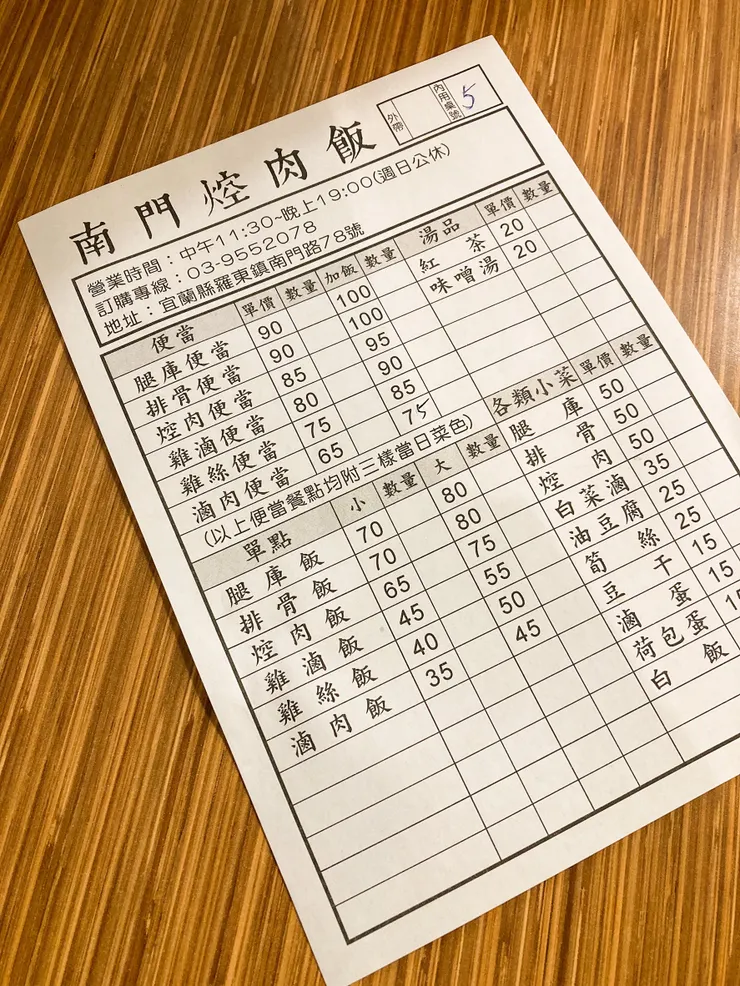 外帶 內用桌號 5
南門焢肉飯
營業時間：中午11:30~晚上19:00(週日公休)
訂購專線：03-9552078
地址：宜蘭縣羅東鎮南門路78號
便當 單價 數量 加飯 數量
腿庫便當 90 100
排骨便當 90 100
焢肉便當 85 95
雞滷便當 80 90
雞絲便當 75 85
滷肉便當 65 75
(以上便當餐點均附三樣當日菜色)
單點 小 數量 大 數量
腿庫飯 70 80
排骨飯 70 80
焢肉飯 65 75
雞滷飯 45 55
雞絲飯 40 50
滷肉飯 35 45
湯品 單價 數量
紅茶 20
味噌湯 20
各類小菜 單價 數量
腿庫 50
排骨 50
焢肉 50
白菜滷 35
油豆腐 25
筍絲 25
豆干 15
滷蛋 15
荷包蛋 15
白飯